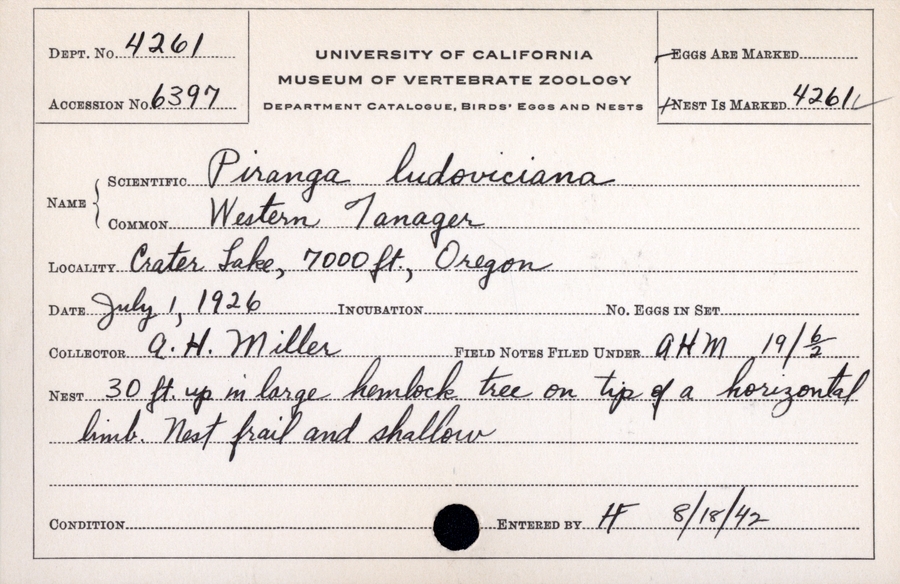 DEPT. No. 4261
ACCESSION No. 6397
UNIVERSITY OF CALIFORNIA
MUSEUM OF VERTEBRATE ZOOLOGY
DEPARTMENT CATALOGUE, BIRDS' EGGS AND NESTS
EGGS ARE MARKED
NEST IS MARKED 4261
NAME { SCIENTIFIC Piranga ludoviciana
COMMON Western Tanager
LOCALITY Crater Lake, 7000 ft., Oregon
DATE July 1, 1926 INCUBATION NO. EGGS IN SET
COLLECTOR A. H. Miller FIELD NOTES FILED UNDER AHM 19/6/2
NEST 30 ft. up in large hemlock tree on tip of a horizontal
limb. Nest frail and shallow
CONDITION ENTERED BY 8/18/42